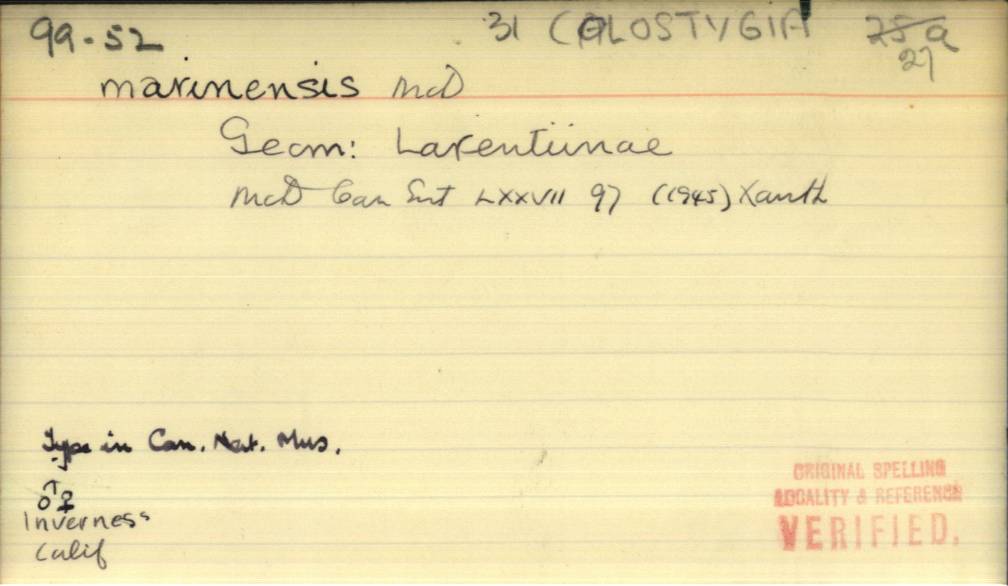 99-52 31 COLOSTYGIA 25a
27
marinensis McD
Geom: Larentiinae
McD Can Ent LXXVII 97 (1945) Xanth
Type in Can. Nat. Mus.
♂♀
Inverness
Calif
ORIGINAL SPELLING
LOCALITY & REFERENCE
VERIFIED.